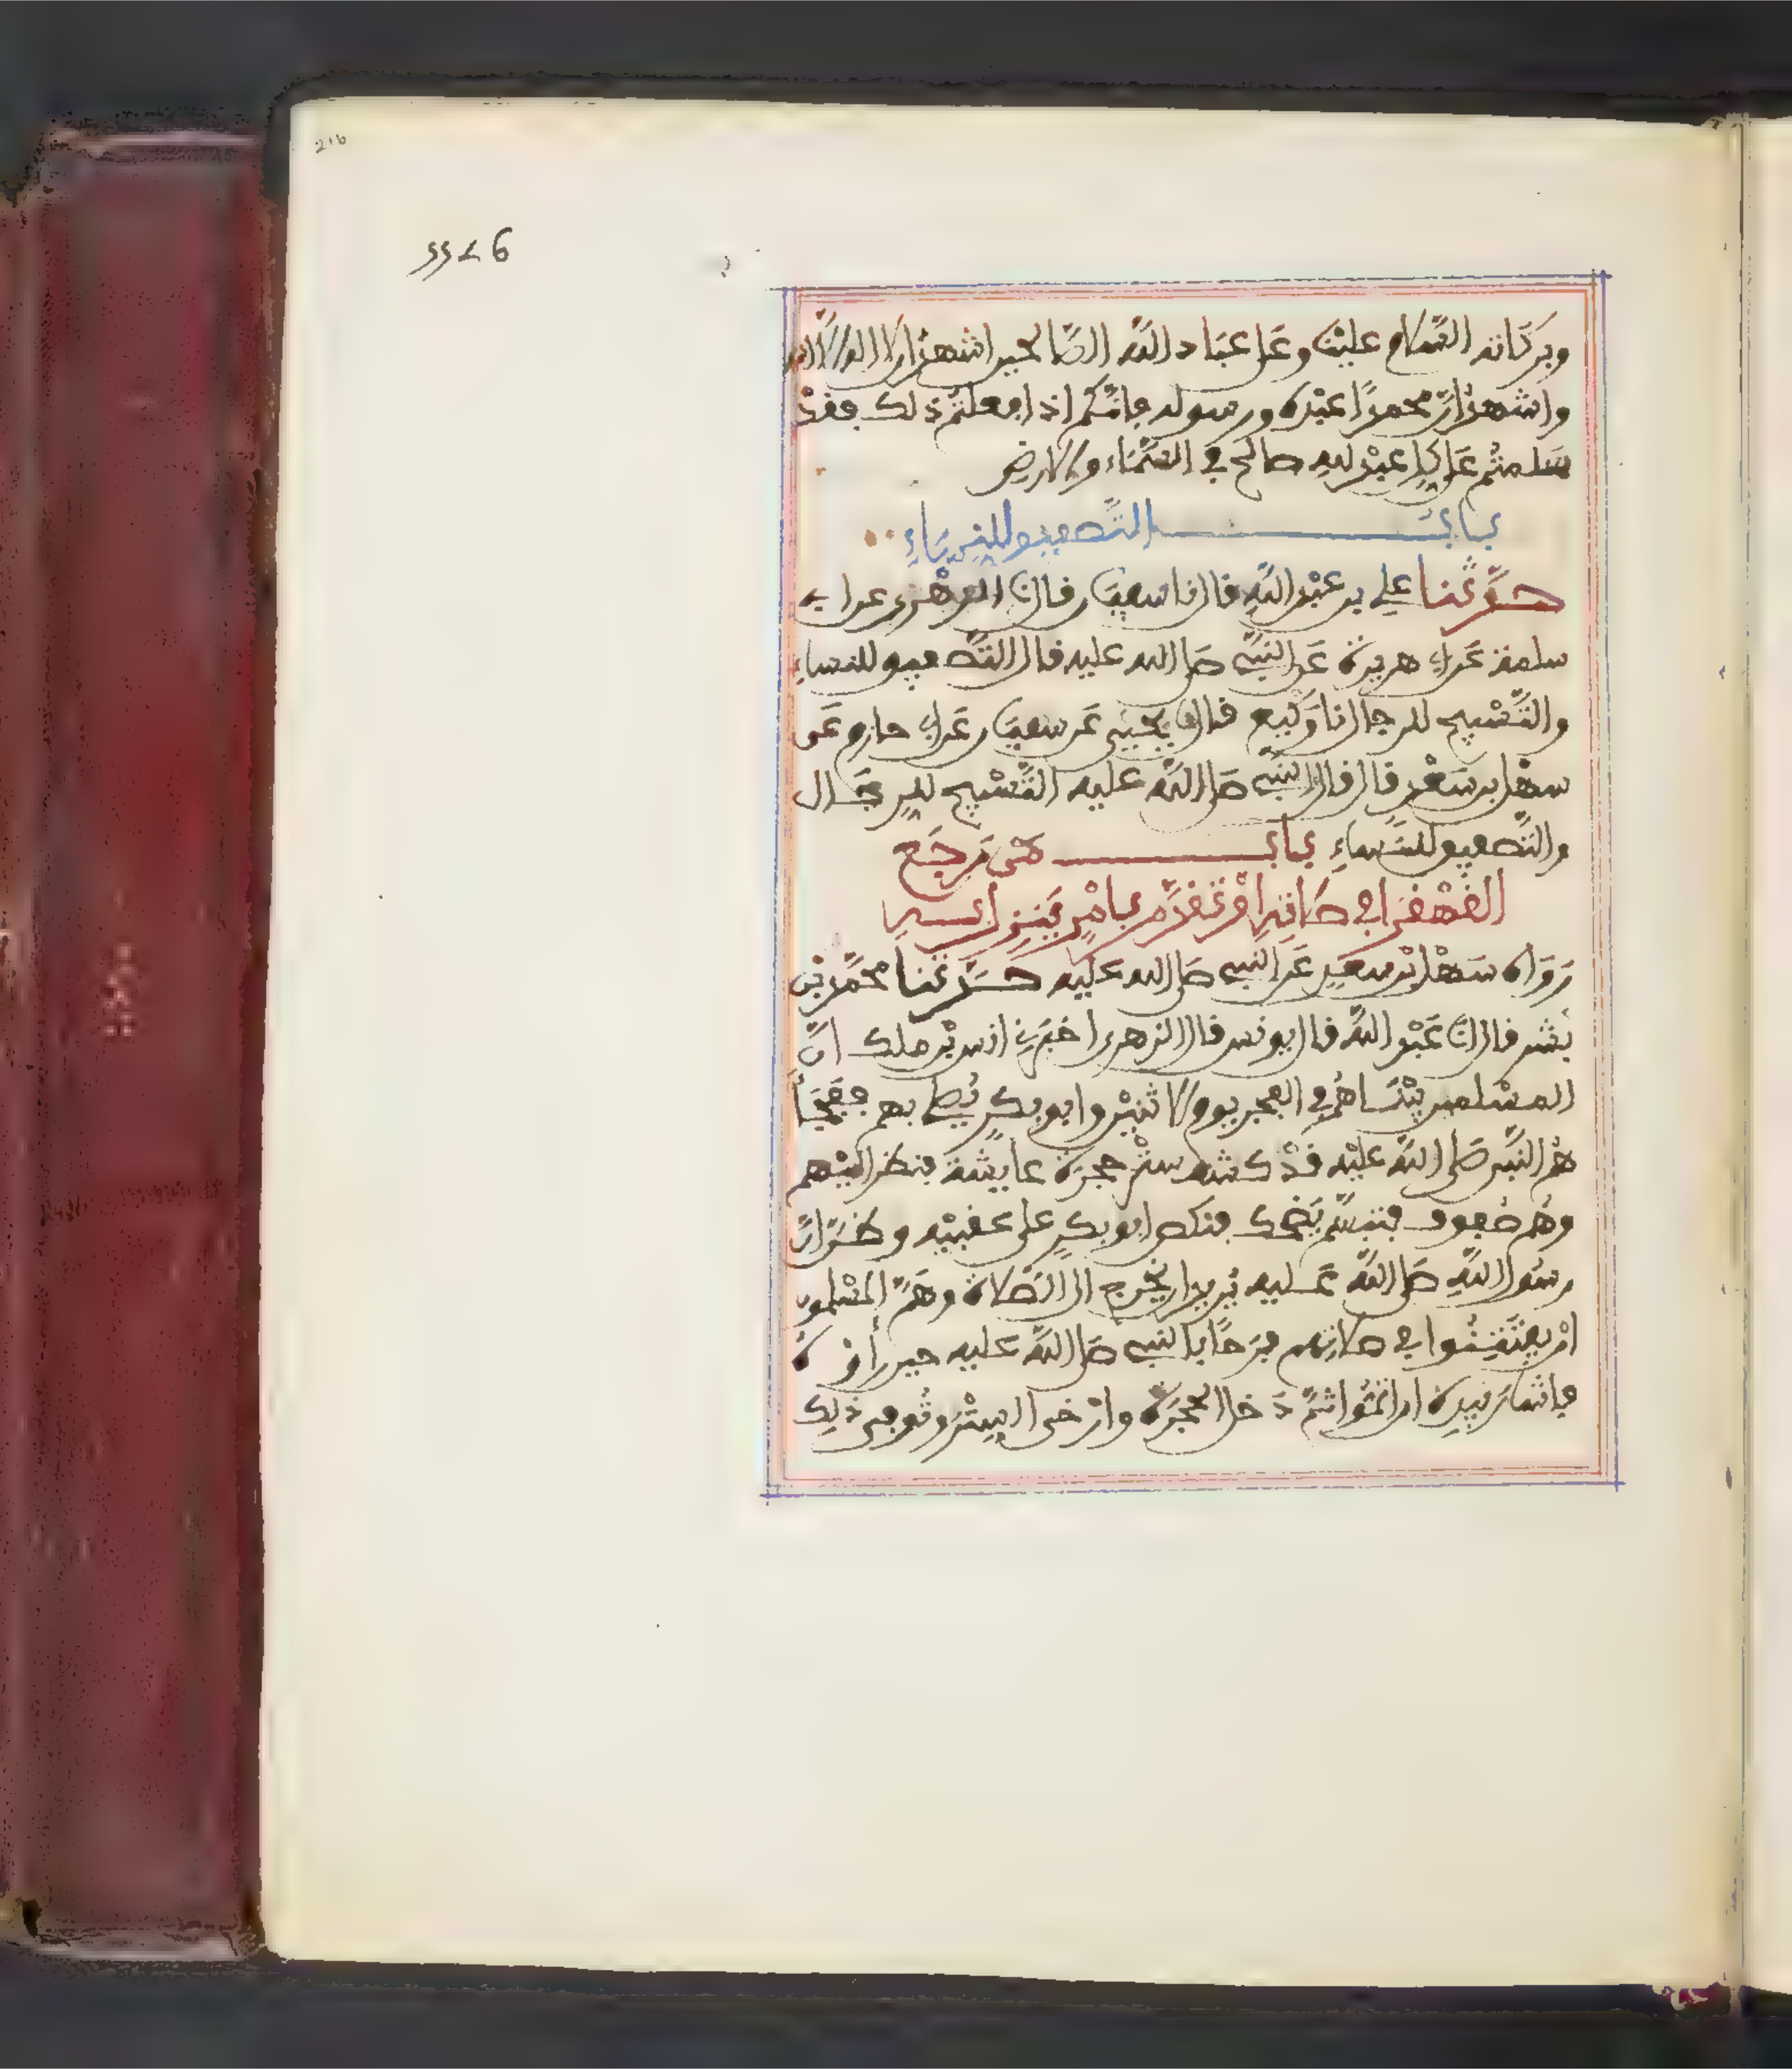 216
وبركاته السَّلام علينا وعلى عباد الله الصَّالحين اشهد ان لا اله الا الله
واشهد انّ محمدًا عبده ورسوله فانّكم اذا فعلتم ذلك فقدْ
سَلمتُم على كل عبدٍ لله صالح في السَّمَاء والارض
باب التَّصفيق للنِّسَاءِ
حدَّثنا علي بن عبد الله قال نا سفيان قال نا الزهري عن ابي
سلمة عن ابي هريرة عن النبي صلى الله عليه قال التَّصفيق للنساءِ
والتَّسْبيح للرجال نا وكيع قال نا يحيى عن سفيان عن ابي حازم عن
سهل بن سَعْد قال قال النبي صلى الله عليه التَّسْبيح للرِّجَال
والتَّصفيق للنِّسَاءِ باب مَن رَجَع
القهْقرا في صلاتِهِ اوْ تقدَّم بامْرٍ ينزل به
رَوَاه سَهْل بْن سعدٍ عن النبي صلى الله عليه حدَّثنا محمّد بن
بشر قال نا عبْد الله قال يونس قال الزهري اخبَرني انس بْن ملك انّ
المسْلمين بيْنَا هُم في الفجر يوم الاثنيْن وابو بكرٍ يُصلي بهم ففَجَأَ
هُم النَّبي صَلى الله عليْه قدْ كشف ستْر حجرة عايشة فنظر اليْهم
وهُم صُفوف فتبسَّم يَضحك فنكص ابو بكرٍ على عقبيْه وظنّ انّ
رسُول الله صلى الله عليه يُريد ان يخرج الى الصَّلاة وهَمّ المسْلمون
انْ يفتَتِنُوا في صلاتِهم فرَحًا بالنبي صلى الله عليه حين رأوْه
فاشار بيده ان اتمُّوا ثمّ دَخل الحجرَة وارْخى السِتْر وتُوفي ذلِك